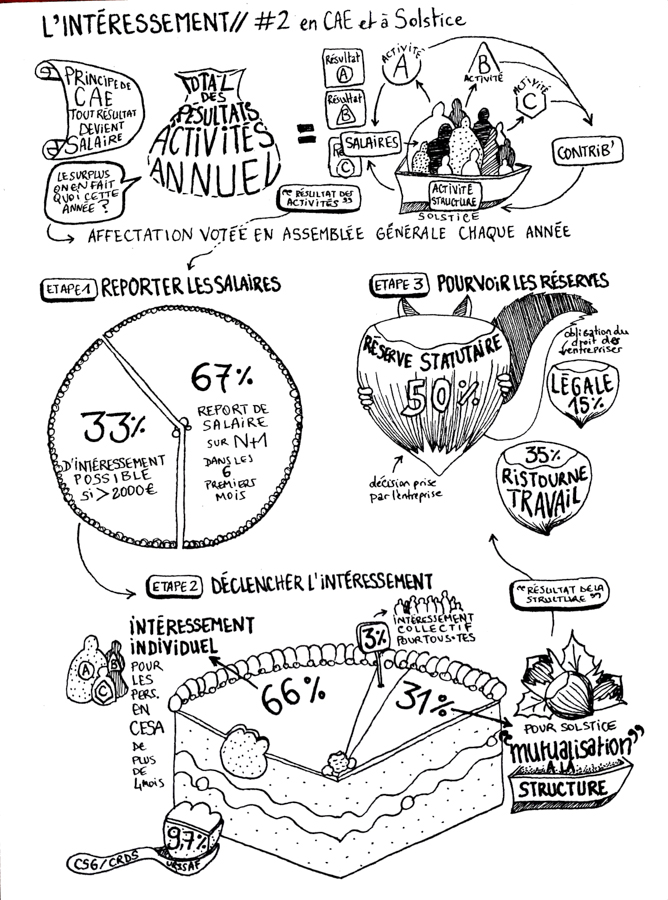 L'INTÉRESSEMENT// #2 en CAE et à Solstice
PRINCIPE DE
CAE
TOUT RÉSULTAT
DEVIENT
SALAIRE
LE SURPLUS
ON EN FAIT
QUOI CETTE
ANNÉE ?
TOTAL
DES
RÉSULTATS
ACTIVITÉS
ANNUEL
=
Résultat
A
Résultat
B
C
SALAIRES
ACTIVITÉ
A
B
ACTIVITÉ
ACTIVITÉ
C
CONTRIB'
ACTIVITÉ
STRUCTURE
SOLSTICE
"RÉSULTAT DES
ACTIVITÉS"
AFFECTATION VOTÉE EN ASSEMBLÉE GÉNÉRALE CHAQUE ANNÉE
ETAPE 1 REPORTER LES SALAIRES
33%
D'INTÉRESSEMENT
POSSIBLE
SI > 2000€
67%
REPORT DE
SALAIRE
SUR N+1
DANS LES
6
PREMIERS
MOIS
ETAPE 3 POURVOIR LES RÉSERVES
RÉSERVE STATUTAIRE
50%
obligation du
droit des
entreprises
LÉGALE
15%
35%
RISTOURNE
TRAVAIL
décision prise
par l'entreprise
"RÉSULTAT DE LA
STRUCTURE"
ETAPE 2 DÉCLENCHER L'INTÉRESSEMENT
INTÉRESSEMENT
INDIVIDUEL
POUR
LES
PERS.
EN
CESA
DE
PLUS
DE
4 MOIS
A
B
C
66%
3%
INTÉRESSEMENT
COLLECTIF
POUR TOUS·TES
31%
POUR SOLSTICE
"mutualisation"
À LA
STRUCTURE
9,7%
CSG/CRDS
URSSAF